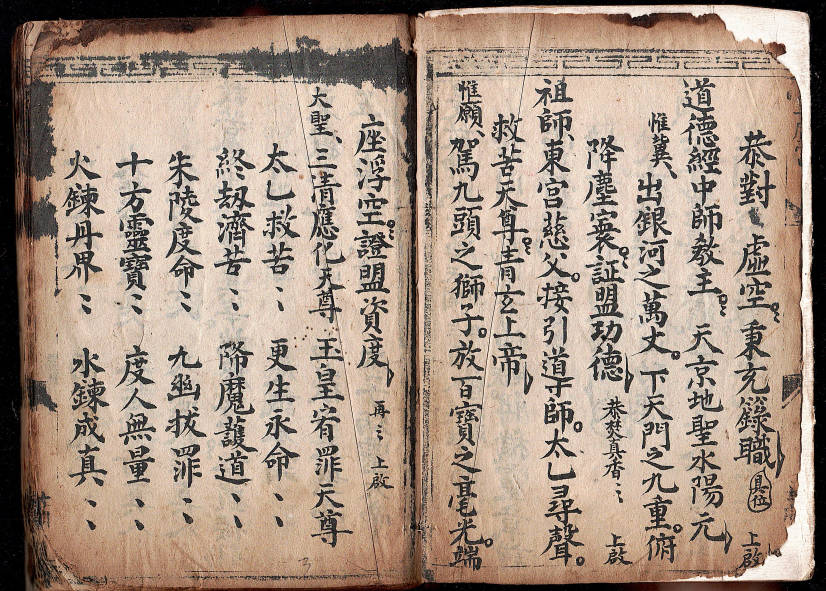 恭對、虛空。秉充籙職 具位 上啟
道德經中師教主。天京地聖水陽元
惟冀、出銀河之萬丈。下天門之九重。俯
降塵寰。証盟功德 恭焚真香ミ 上啟
祖師、東宮慈父。接引導師。太乙尋聲。
救苦天尊。青玄上帝
惟願、駕九頭之獅子。放百寶之毫光。端
座浮空。證盟資度 再ミ 上啟
大聖、三清應化天尊 玉皇宥罪天尊
太乙救苦ミ 更生永命ミ
終劫濟苦ミ 降魔護道ミ
朱陵度命ミ 九幽拔罪ミ
十方靈寶ミ 度人無量ミ
火鍊丹界ミ 水鍊成真ミ
3